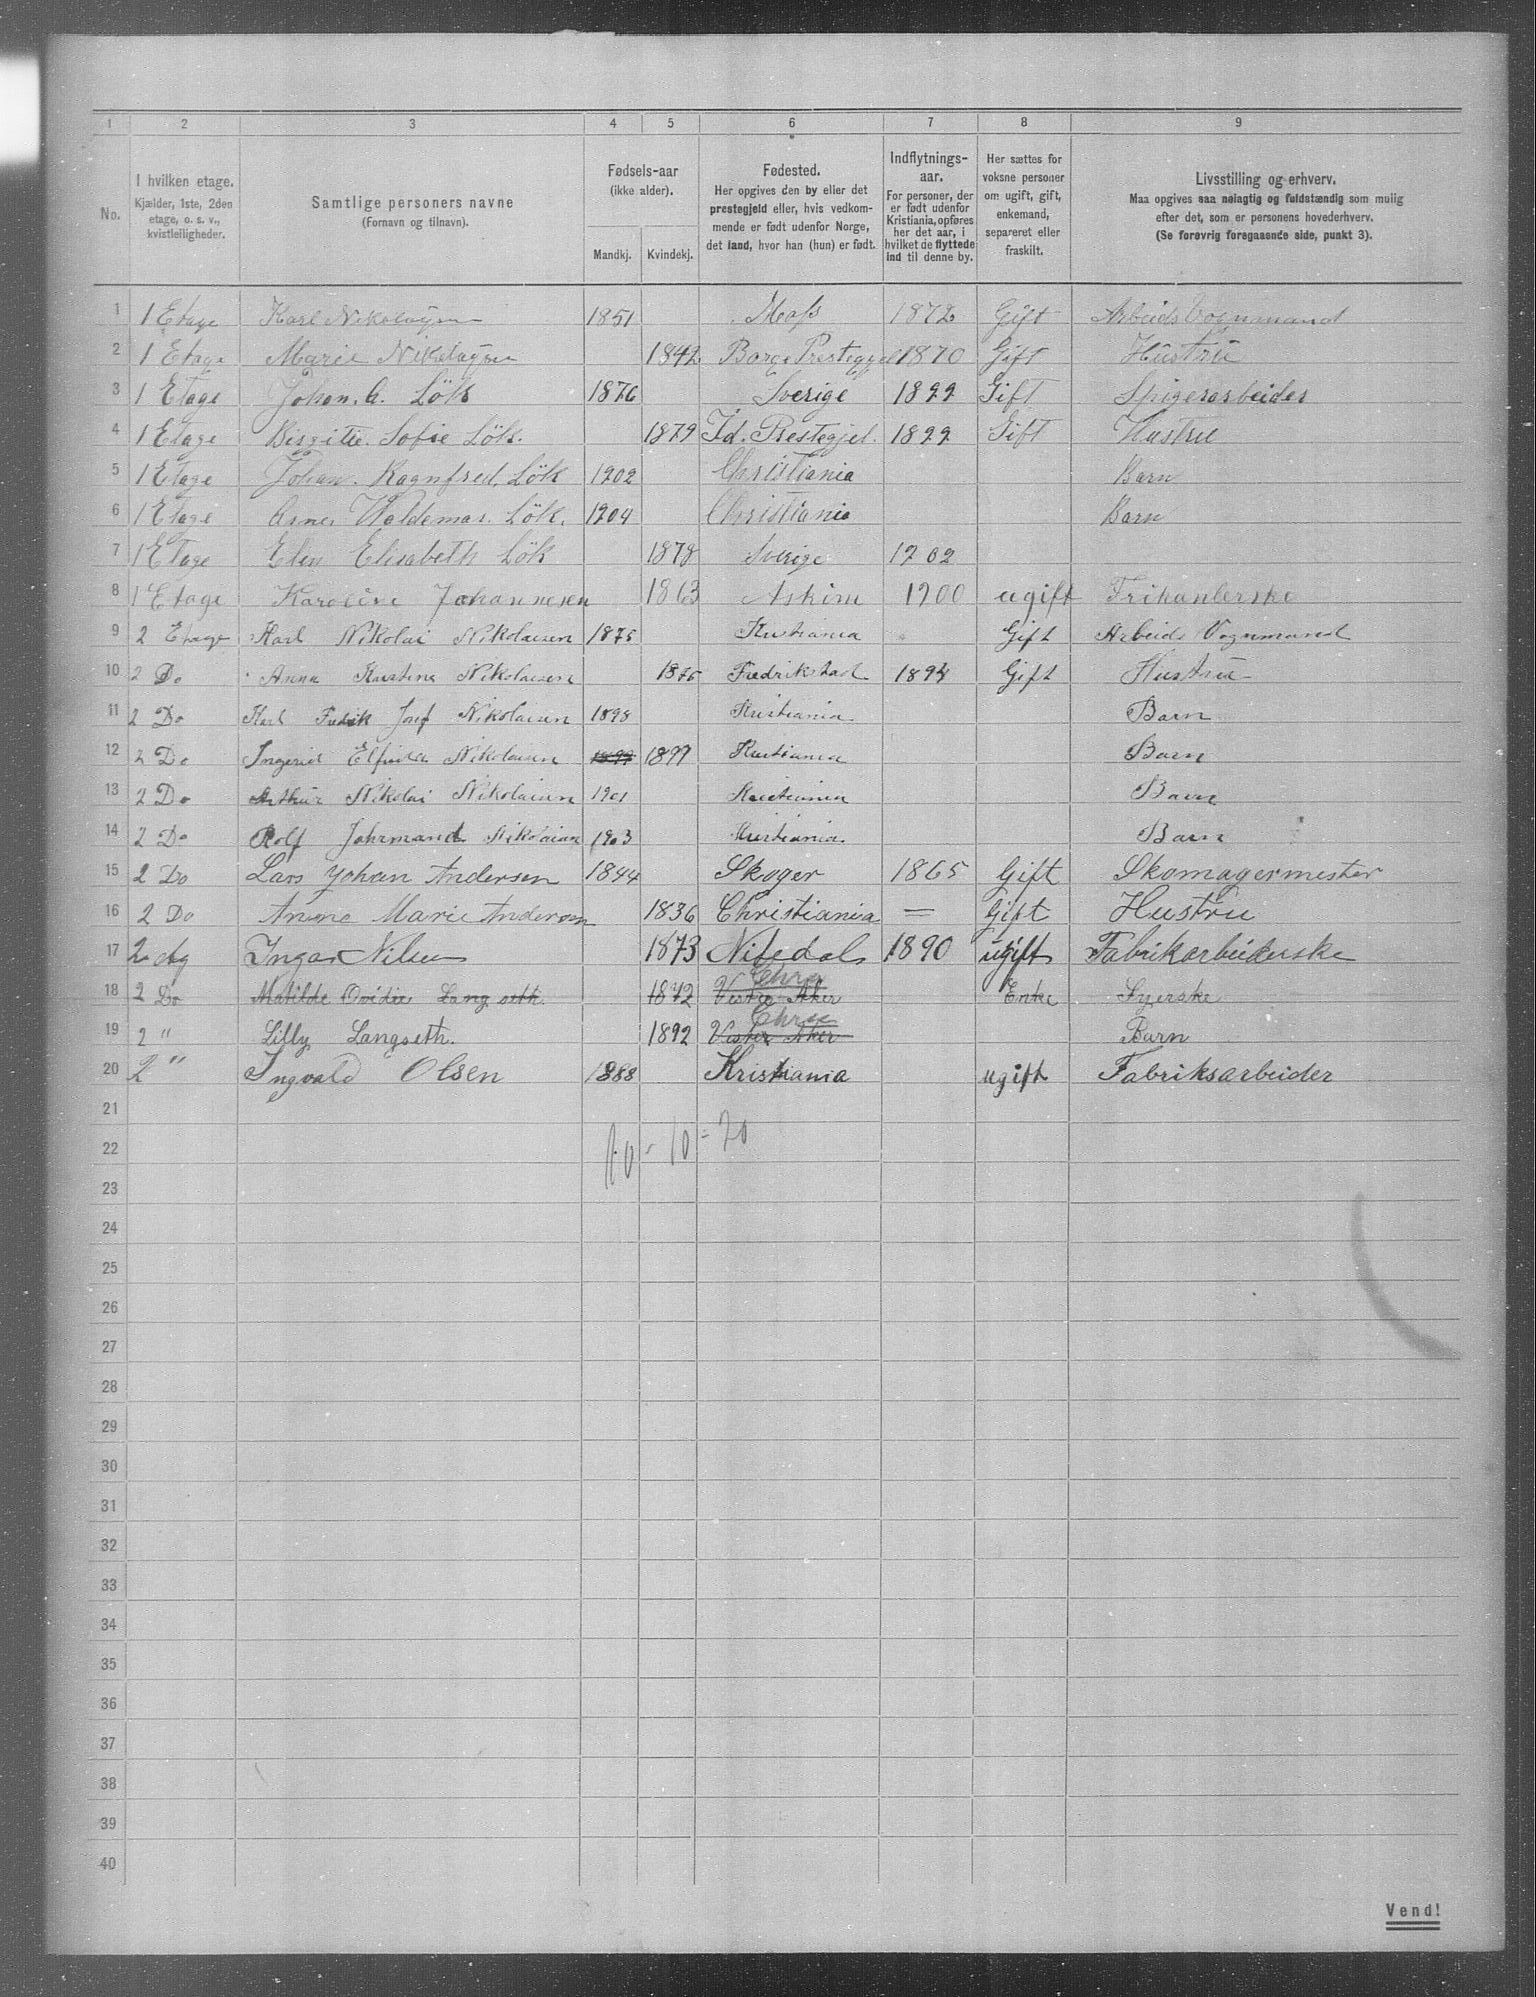 1 2 3 4 5 6 7 8 9
No.
I hvilken etage.
Kjælder, 1ste, 2den
etage, o. s. v.,
kvistleiligheder.
Samtlige personers navne
(Fornavn og tilnavn).
Fødsels-aar
(ikke alder).
Mandkj. Kvindekj.
Fødested.
Her opgives den by eller det
prestegjeld eller, hvis vedkom-
mende er født udenfor Norge,
det land, hvor han (hun) er født.
Indflytnings-
aar.
For personer, der
er født udenfor
Kristiania, opføres
her det aar, i
hvilket de flyttede
ind til denne by.
Her sættes for
voksne personer
om ugift, gift,
enkemand,
separeret eller
fraskilt.
Livsstilling og erhverv.
Maa opgives saa nøiagtig og fuldstændig som mulig
efter det, som er personens hovederhverv.
(Se forøvrig foregaaende side, punkt 3).
1 1 Etage Karl Nikolaysen 1851 Moss 1872 Gift Arbeids Vognmand
2 1 Etage Marie Nikolaysen 1842 Borge Prestegjel 1870 Gift Hustru
3 1 Etage Johan. A. Lök 1876 Sverige 1899 Gift Spigerarbeider
4 1 Etage Birgitte. Sofie Lök. 1879 Id. Prestegjel. 1899 Gift Hustru
5 1 Etage Johan. Ragnfred. Lök 1902 Christiania Barn
6 1 Etage Arne. Valdemar. Lök. 1904 Christiania Barn
7 1 Etage Elen Elisabeth Lök 1878 Sverige 1902
8 1 Etage Karoline Johannesen 1863 Askim 1900 ugift Frihanlerske
9 2 Etage Karl Nikolai Nikolaisen 1875 Kristiania Gift Arbeids Vognmand
10 2 Do Anna Kristine Nikolaisen 1875 Fredrikstad 1894 Gift Hustru
11 2 Do Karl Fredrik Josef Nikolaisen 1898 Kristiania Barn
12 2 Do Ingerid Elfrida Nikolaisen 1899 1899 Kristiania Barn
13 2 Do Arthur Nikolai Nikolaisen 1901 Kristiania Barn
14 2 Do Rolf Johrmand Nikolaisen 1903 Kristiania Barn
15 2 Do Lars Johan Andersen 1844 Skoger 1865 Gift Skomagermester
16 2 Do Anne Marie Andersen 1836 Christiania = Gift Hustru
17 2 Inga Nilsen 1873 Nitedal 1890 ugift Fabrikarbeiderske
Chra
18 2 Do Matilde Ovidie Langseth 1872 Vestre Aker Enke Syerske
Chra
19 2 " Lilly Langseth. 1892 Vestre Aker Barn
20 2 " Ingvald Olsen 1888 Kristiania ugift Fabriksarbeider
21
22 10 - 10 = 20
23
24
25
26
27
28
29
30
31
32
33
34
35
36
37
38
39
40
Vend!